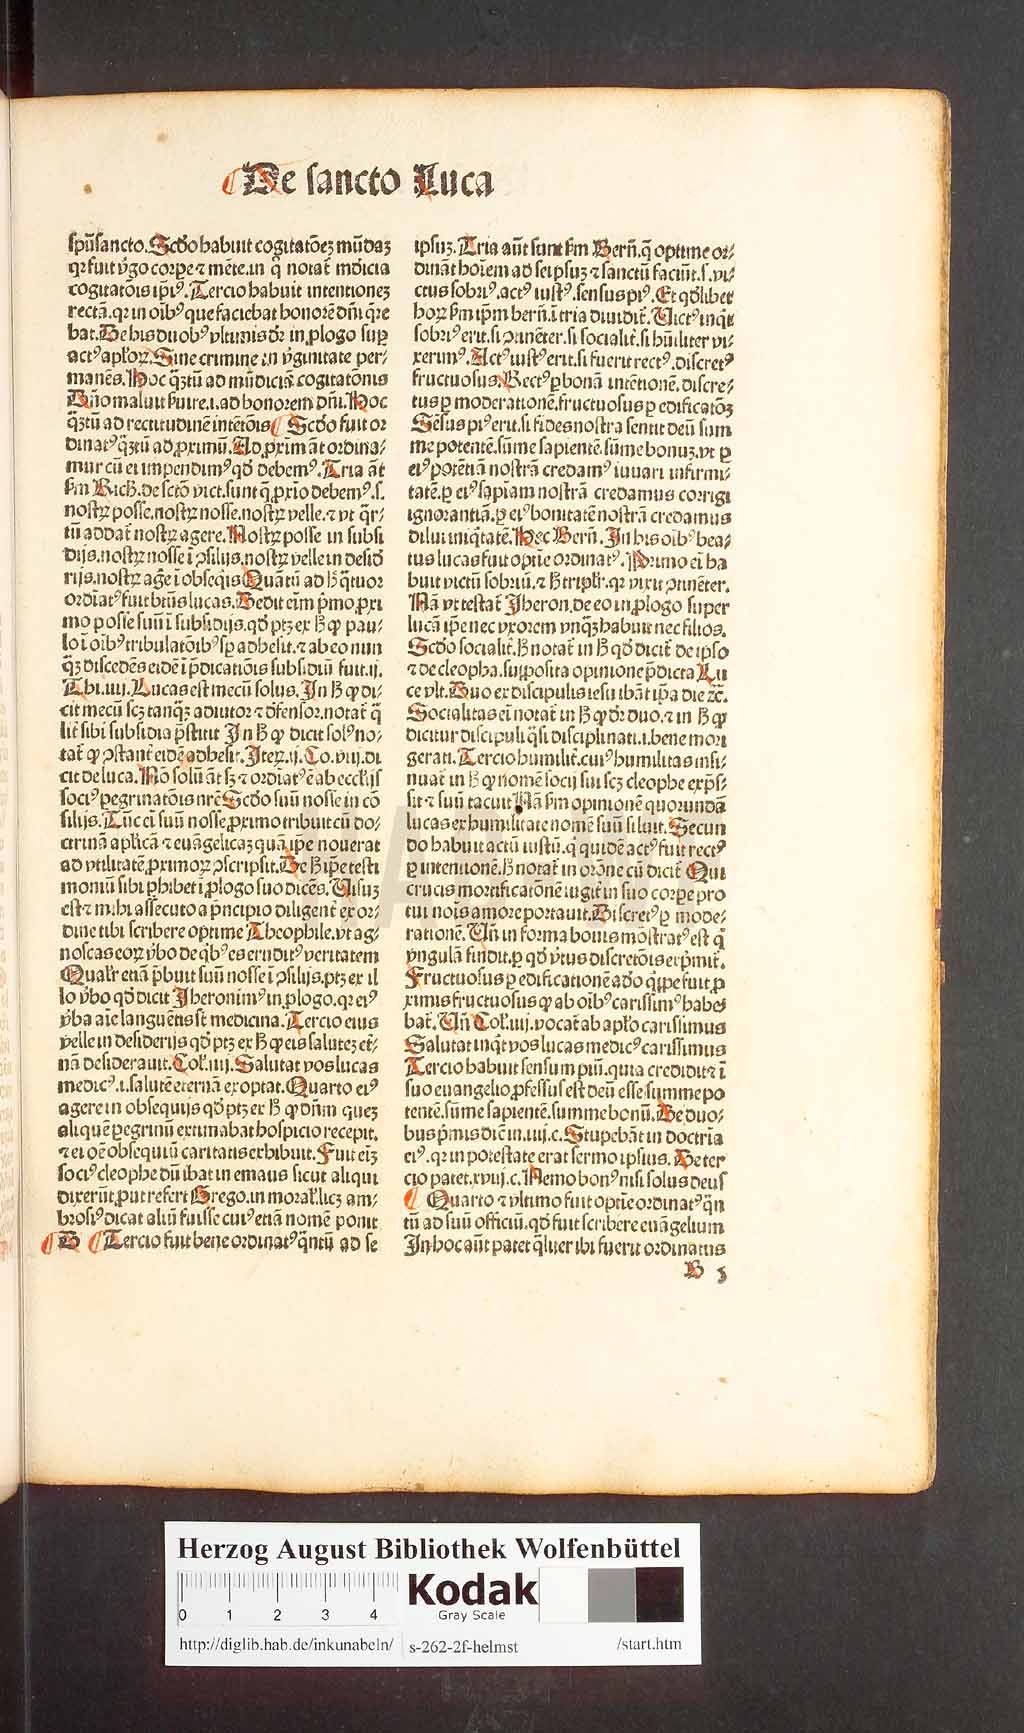 De sancto Luca
spūsancto. Scdo habuit cogitatōez mūdaz
qr fuit v̄go corpe ⁊ mēte. in q̄ notat᷑ mūdicia
cogitatōis ip̄iꝰ. Tercio habuit intentionez
rectā. qr in oībꝰ que faciebat honorē dn̄i q̄re
bat. De his duobꝰ vltimis dr̄ in ꝓlogo suꝑ
actꝰ apl̓oꝝ. Sine crimine in v̓ginitate per-
manēs. Hoc q̄ꝫtū ad mūdiciā cogitatōnis
Dn̄o maluit ẜuire .i. ad honorem dn̄i. Hoc
q̄ꝫtū ad rectitudinē intētōis Scdo fuit or
dinatꝰ q̄ꝫtū ad ꝓximū. Ad ꝓximū āt ordina-
mur cū ei impendimꝰ qd̓ debemꝰ. Tria āt
ẜm Rich. de scto vict. sunt q̄ ꝓxīo debemꝰ .s.
nostꝝ posse. nostꝝ nosse. nostꝝ velle. ⁊ vt q̄r-
tū addat᷑ nostꝝ agere. Nostꝝ posse in subsi
dijs. nostꝝ nosse ī ꝯsilijs. nostꝝ velle in desid̓
rijs. nostꝝ ag̓e ī obseq̄is Quātū ad h̓ q̄tuor
ordīatꝰ fuit btūs lucas. Dedit eīm p̓mo ꝓxi
mo posse suū ī subsidijs. qd̓ ptꝫ ex h̓ ꝙ pau-
lo ī oībꝰ tribulatōībꝰ sꝑ adhesit. ⁊ ab eo nun
q̄ꝫ discedēs eidē ī p̄dicatiōis subsidiū fuit .ij.
Thi. iiij. Lucas est mecū solus. In h̓ ꝙ di-
cit mecū scꝫ tanq̄ꝫ adiutor ⁊ dēfensor. notat᷑ q̄
lit̓ sibi subsidia p̄stitit In h̓ ꝙ dicit solꝰ no-
tat᷑ ꝙ ꝯstant̓ eidē adhesit. Iteꝫ .ij. Co. viij. di
cit de luca. Nō solū āt sꝫ ⁊ ordīatꝰ ē ab eccl̓ijs
sociꝰ pegrinatōis nr̄e Scdo suū nosse in cō
silijs. Tūc eī suū nosse ꝓximo tribuit cū do-
ctrinā apl̓icā ⁊ euāgelicaꝫ quā ip̄e nouerat
ad vtilitatē ꝓximoꝝ ꝯscripsit. De h̓ ip̄e testi
moniū sibi ꝑhibet ī ꝓlogo suo dicēs. Uisuꝫ
est ⁊ mihi assecuto a p̄ncipio diligent̓ ex or-
dine tibi scribere optime Theophile. vt ag-
noscas eoꝝ v̓bo de qb̓ꝰ es eruditꝰ veritatem
Qual̓r etiā p̄buit suū nosse ī ꝯsilijs. ptꝫ ex il
lo v̓bo qd̓ dicit Iheronimꝰ in ꝓlogo. qr eiꝰ
v̓ba aīe languētis st̄ medicina. Tercio eius
velle in desiderijs qd̓ ptꝫ ex h̓ ꝙ eis salutez et̓-
nā desiderauit. Col̓. iiij. Salutat vos lucas
medicꝰ .i. salutē eternā exoptat. Quarto eiꝰ
agere in obsequijs qd̓ ptꝫ ex h̓ ꝙ dn̄m quez
aliquē pegrinū extimabat hospicio recepit.
⁊ ei oē obsequiū caritatis exhibuit. Fuit eiꝫ
sociꝰ cleophe dū ibat in emaus sicut aliqui
dixerūt ꝓut refert Grego. in moral̓. licꝫ am-
brosiꝰ dicat aliū fuisse cuiꝰ etiā nomē ponit
D Tercio fuit bene ordinatꝰ q̄ntū ad se
ipsuꝫ. Tria aūt sunt ẜm Bern̄. q̄ optime or-
dināt hoīem ad seipsuꝫ ⁊ sanctū faciūt .s. vi-
ctus sobriꝰ. actꝰ iustꝰ. sensus piꝰ. Et qd̓libet
hoꝝ ẜm ip̄m bern̄. ī tria diuidit᷑. Uictꝰ inq̄t
sobriꝰ erit. si ꝯtinēter. si socialit̓. si hūiliter vi-
xerimꝰ. Actꝰ iustꝰ erit. si fuerit rectꝰ. discretꝰ
fructuosus. Rectꝰ ꝑ bonā intētionē. discre-
tus ꝑ moderationē. fructuosus ꝑ edificatōꝫ
Sēsus piꝰ erit. si fides nostra sentit deū sum
me potentē. sūme sapientē. sūme bonuꝫ. vt ꝑ
eiꝰ potētiā nostrā credamꝰ iuuari infirmi-
tatē. ꝑ eiꝰ sapīam nostrā credamus corrigi
ignorantiā. ꝑ eiꝰ bonitatē nostrā credamus
dilui iniq̄tatē. Hec Bern̄. In his oībꝰ bea-
tus lucas fuit optīe ordinatꝰ. Primo eī ha
buit victū sobriū. ⁊ h̓ tripl̓r. qr vixit ꝯtinēter.
Nā vt testat᷑ Iheron. de eo in ꝓlogo super
lucā ip̄e nec vxorem vnq̄ꝫ habuit nec filios.
Scdo socialit̓. h̓ notat᷑ in h̓ qd̓ dicit᷑ de ipso
⁊ de cleopha. supposita opinione p̄dicta Lu
ce vlt. Duo ex discipulis iesu ibāt ip̄a die ⁊c̄.
Socialitas eī notat᷑ in h̓ ꝙ dr̄ duo. ⁊ in h̓ ꝙ
dicitur discipuli q̄si disciplinati .i. bene mori
gerati. Tercio humilit̓. cuiꝰ humilitas insi-
nuat᷑ in h̓ ꝙ nomē socij sui scꝫ cleophe exp̄s-
sit ⁊ suū tacuit Nā ẜm opinionē quorundā
lucas ex humilitate nomē suū siluit. Secun
do habuit actū iustū. q̓ quidē actꝰ fuit rectꝰ
ꝑ intentionē. h̓ notat᷑ in orōne cū dicit᷑ Qui
crucis mortificatōnē iugit̓ in suo corꝑe pro
tui noīs amore portauit. Discretꝰ ꝑ mode-
rationē. Un̄ in forma bouis mōstratꝰ est q̓
vngulā findit. ꝑ qd̓ v̓tus discretōis exp̓mit᷑.
Fructuosus ꝑ edificationē ad q̄ꝑpe fuit ꝓ
ximis fructuosus ꝙ ab oībꝰ carissimꝰ habe
bat᷑. Un̄ Col̓. iiij. vocat᷑ ab apl̓o carissimus
Salutat inq̄t vos lucas medicꝰ carissimus
Tercio habuit sensum piū. quia credidit ⁊ ī
suo euangelio ꝓfessus est deū esse summe po
tentē. sūme sapientē. summe bonū. De duo-
bus p̓mis dīc̄ in .iiij. c. Stupebāt in doctria
eiꝰ. qr in potestate erat sermo ipsius. De ter
cio patet. xviij. c. Nemo bonꝰ nisi solus deus
Quarto ⁊ vltimo fuit optīe ordinatꝰ q̄n
tū ad suū officiū. qd̓ fuit scribere euāgelium
In hoc aūt patet q̄liter ibi fuerit ordinatus
B 5
Herzog August Bibliothek Wolfenbüttel
0 1 2 3 4
Kodak
Gray Scale
http://diglib.hab.de/inkunabeln/ s-262-2f-helmst /start.htm